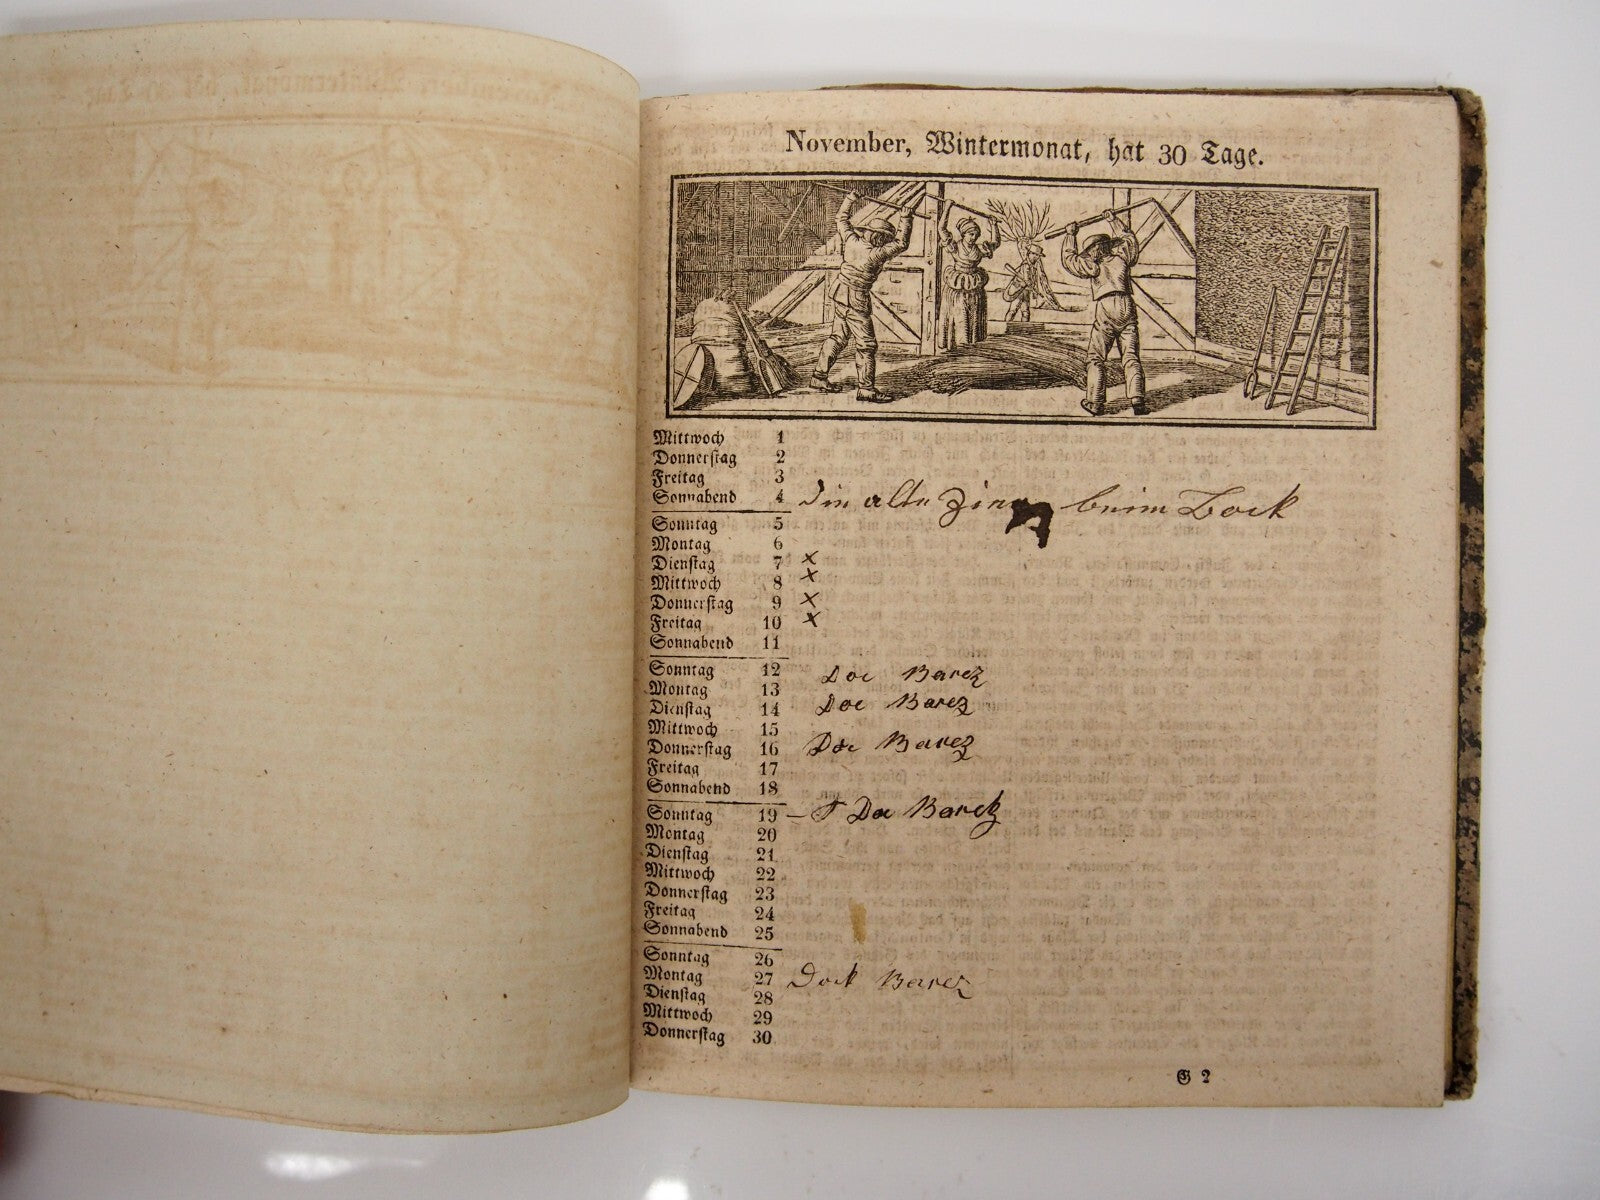 November, Wintermonat, hat 30 Tage.
Mittwoch 1
Donnerstag 2
Freitag 3
Sonnabend 4 Die alte beim Bock
Sonntag 5
Montag 6
Dienstag 7 ×
Mittwoch 8 ×
Donnerstag 9 ×
Freitag 10 ×
Sonnabend 11
Sonntag 12 Doc Barez
Montag 13
Dienstag 14 Doc Barez
Mittwoch 15
Donnerstag 16 Doc Barez
Freitag 17
Sonnabend 18
Sonntag 19 Barez
Montag 20
Dienstag 21
Mittwoch 22
Donnerstag 23
Freitag 24
Sonnabend 25
Sonntag 26
Montag 27 Barez
Dienstag 28
Mittwoch 29
Donnerstag 30
G 2